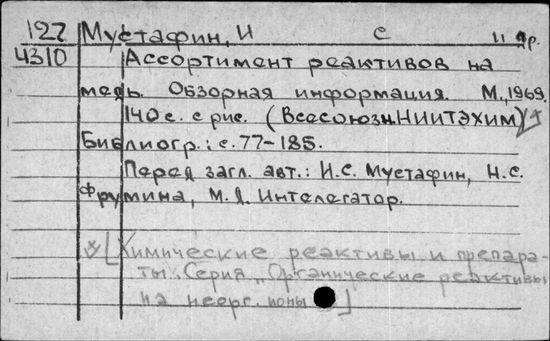 127 Мустафин, И с 11 др.
4310 Ассортимент реактивов на
медь. Обзорная информация. М., 1969.
140 с. с рис. (Всесоюзн. НИИТЭХИМ)
Библиогр.: с. 77-185.
Перед загл. авт.: И.С. Мустафин, Н.С.
Фрумина, М.Я. Интелегатор.
[Химические реактивы и препара-
ты. Серия „Органические реактивы
на неорг. ионы"]